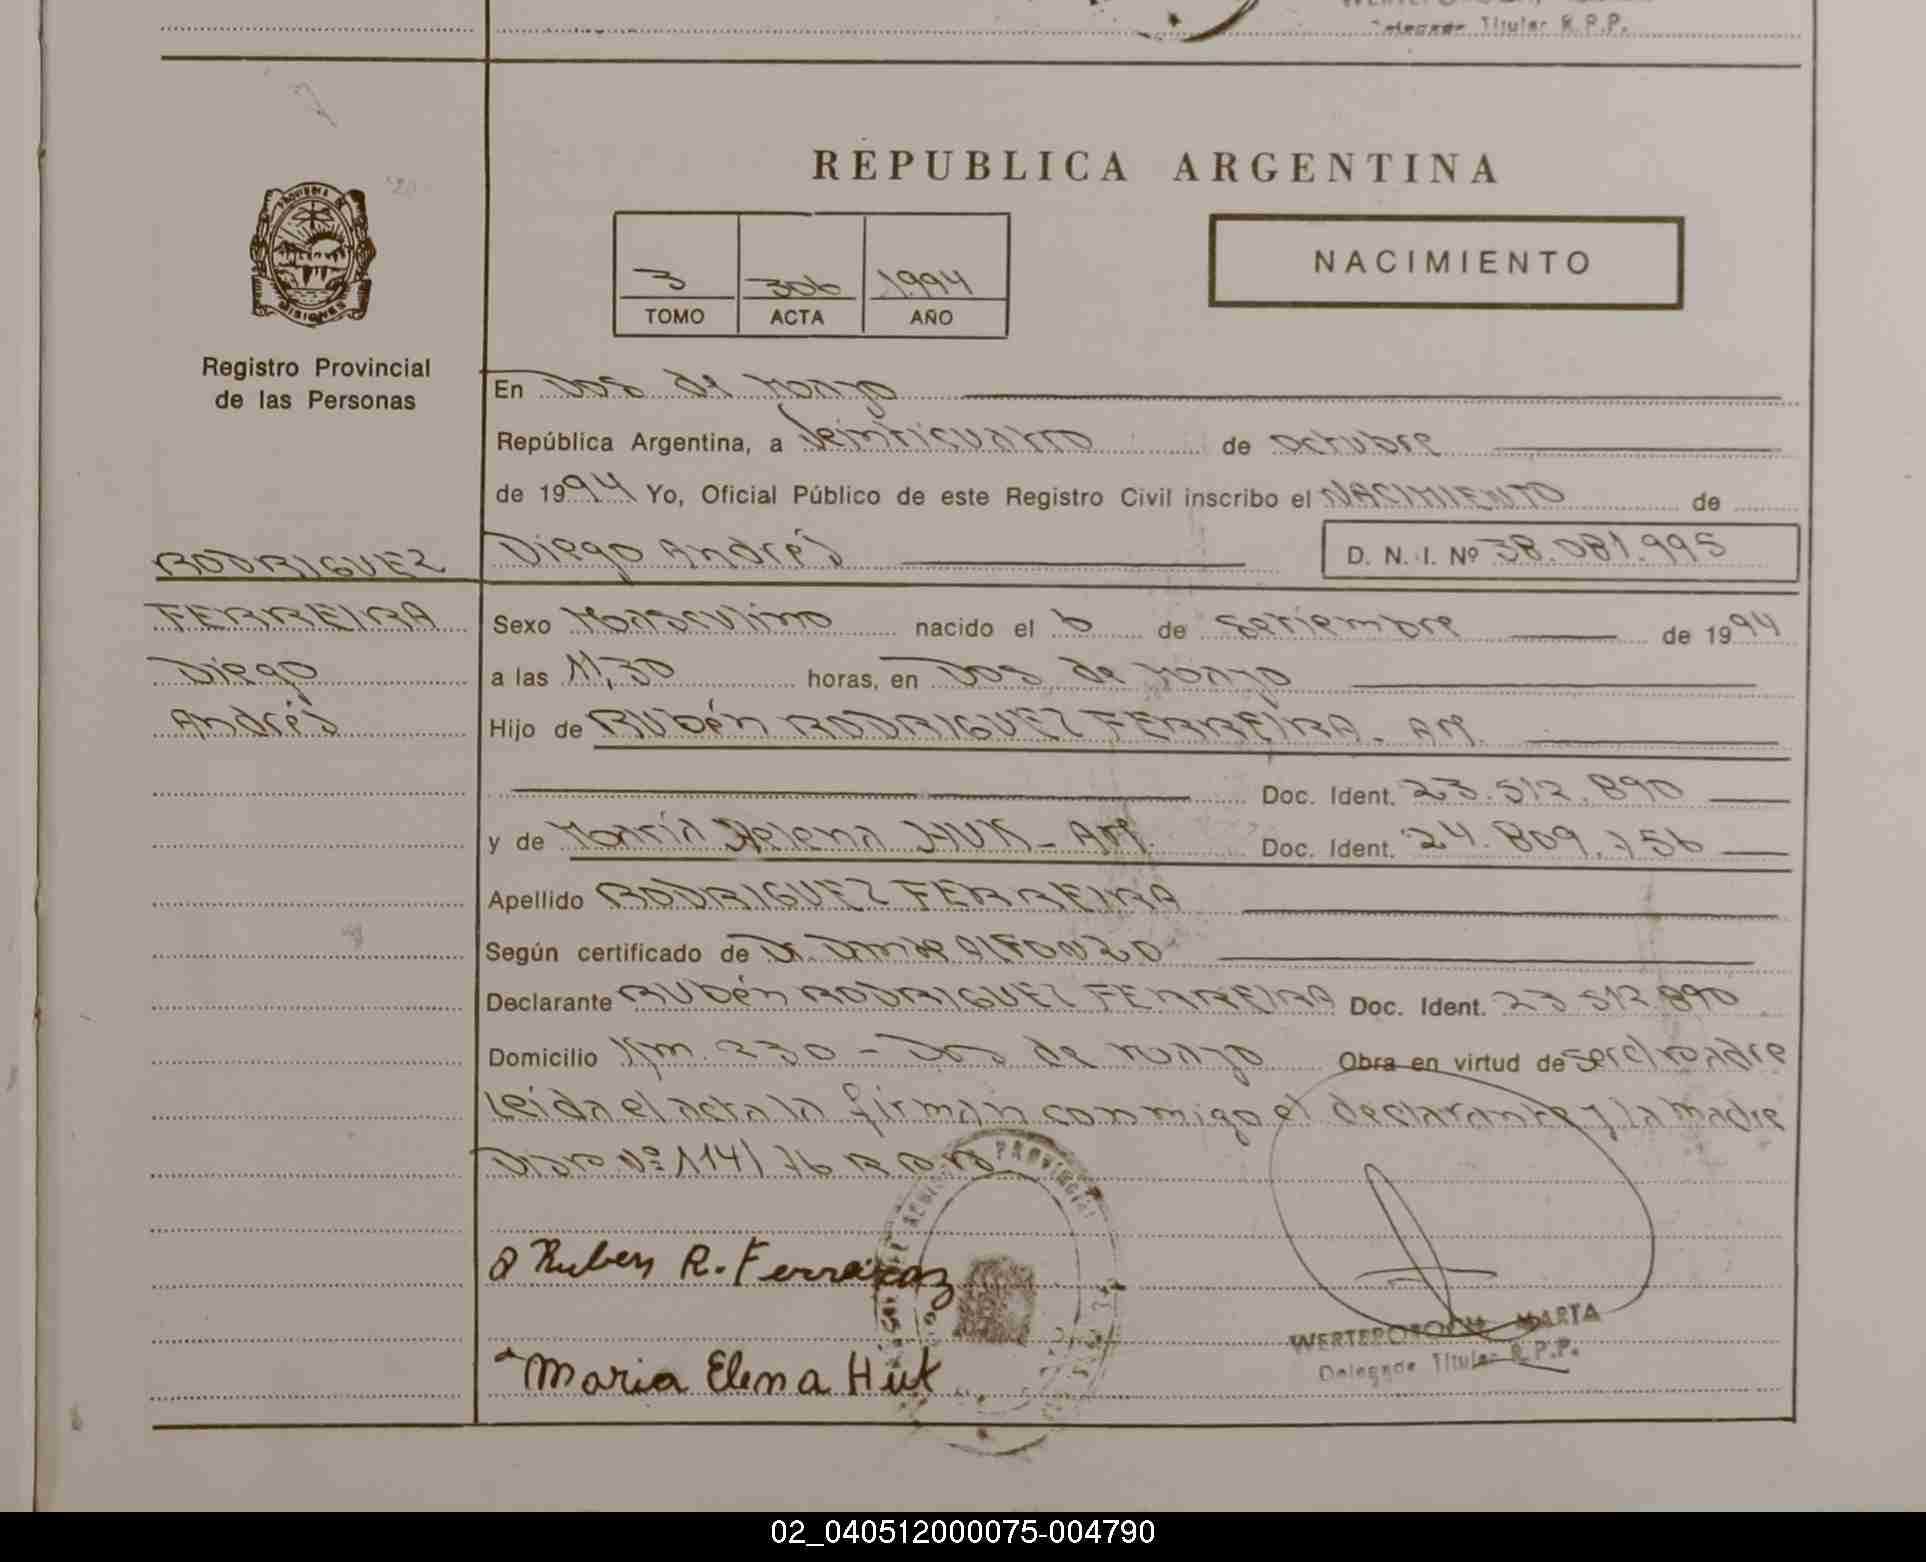 Titular R.P.P.
REPUBLICA ARGENTINA
PROVINCIA DE
MISIONES
Registro Provincial
de las Personas
3 306 1994
TOMO ACTA AÑO
NACIMIENTO
En Dos de Mayo
República Argentina, a Veinticuatro de octubre
de 1994 Yo, Oficial Público de este Registro Civil inscribo el NACIMIENTO de
Diego Andrés D. N. I. Nº 38.081.995
RODRIGUEZ
FERREIRA
Diego
Andrés
Sexo Masculino nacido el 6 de Setiembre de 1994
a las 11,30 horas, en Dos de Mayo
Hijo de Rubén RODRIGUEZ FERREIRA. AM.
Doc. Ident. 23.512.890
y de María Helena HUK - AM. Doc. Ident. 24.809.756
Apellido RODRIGUEZ FERREIRA
Según certificado de Dr. Dante Alfonzo
Declarante Rubén RODRIGUEZ FERREIRA Doc. Ident. 23 512 890
Domicilio Km. 230 - Dos de Mayo Obra en virtud de ser el padre
Leida el acta la firman conmigo el declarante y la madre
Nº 1141/76
Ruben R. Ferreira
Maria Elena Huk
PROVINCIAL
MARTA
Delegada Titular R.P.P.
02_040512000075-004790